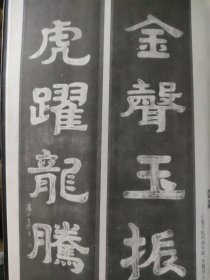 金聲玉振
虎躍龍騰